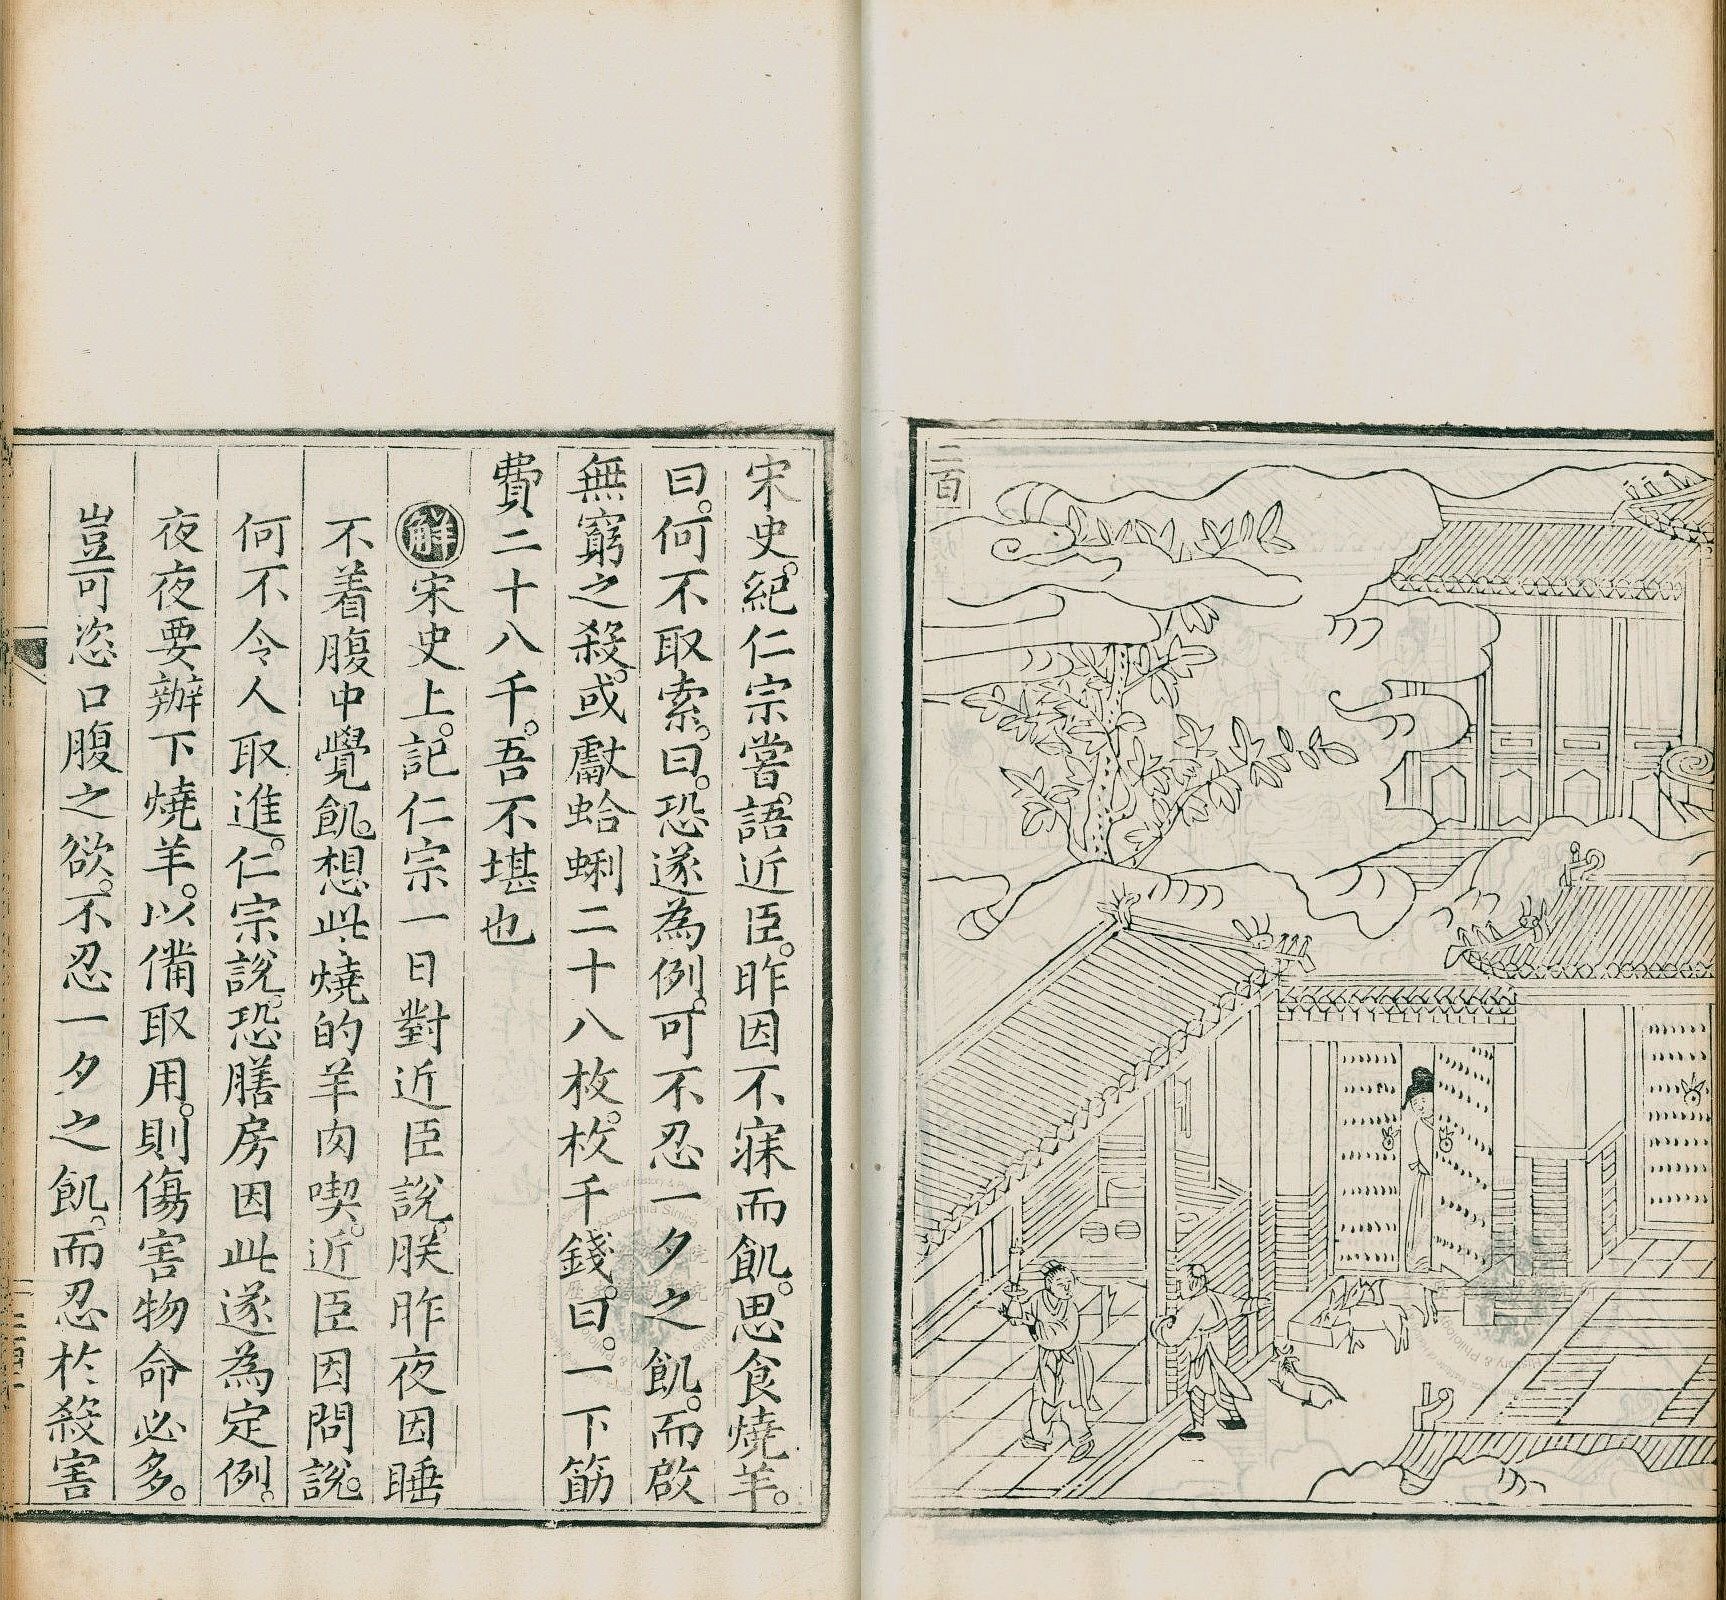 二百
宋史。紀仁宗嘗。語近臣。昨因不寐而飢。思食燒羊。
曰。何不取索。曰。恐遂為例。可不忍一夕之飢。而啟
無窮之殺。或獻蛤蜊二十八枚。枚千錢。曰。一下筯
費二十八千。吾不堪也
解宋史上。記仁宗一日對近臣說。朕昨夜因睡
不着腹中覺飢。想此燒的羊肉喫。近臣因問說。
何不令人取進。仁宗說。恐膳房因此遂為定例。
夜夜要辦下燒羊。以備取用。則傷害物命必多。
豈可恣口腹之欲。不忍一夕之飢。而忍於殺害